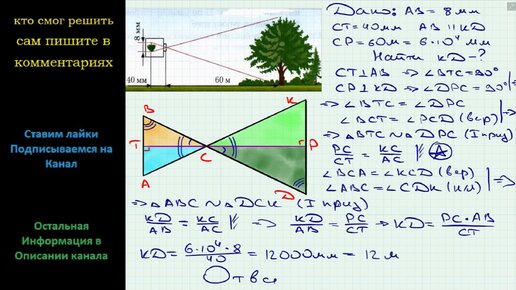 кто смог решить
сам пишите в
комментариях
Ставим лайки
Подписываемся на
Канал
Остальная
Информация в
Описании канала
8 мм
40 мм
60 м
B
T
A
C
K
P
D
Дано: AB = 8 мм
CT = 40 мм AB || KD
CP = 60м = 6·10⁴ мм
Найти KD - ?
CT⊥AB ⇒ ∠BTC = 90°
CP⊥KD ⇒ ∠DPC = 90° |⇒
⇒ ∠BTC = ∠DPC
∠BCT = ∠PCD (вер) |⇒
⇒ △BTC ∾ △DPC (I приз)
PC/CT = KC/AC A
∠BCA = ∠KCD (вер)
∠ABC = ∠CDK (нл) |⇒
⇒ △ABC ∾ △DCK (I приз)
KD/AB = KC/AC || ⇒ KD/AB = PC/CT ⇒ KD = PC·AB/CT
KD = 6·10⁴·8/40 = 12000мм = 12 м
Ответ